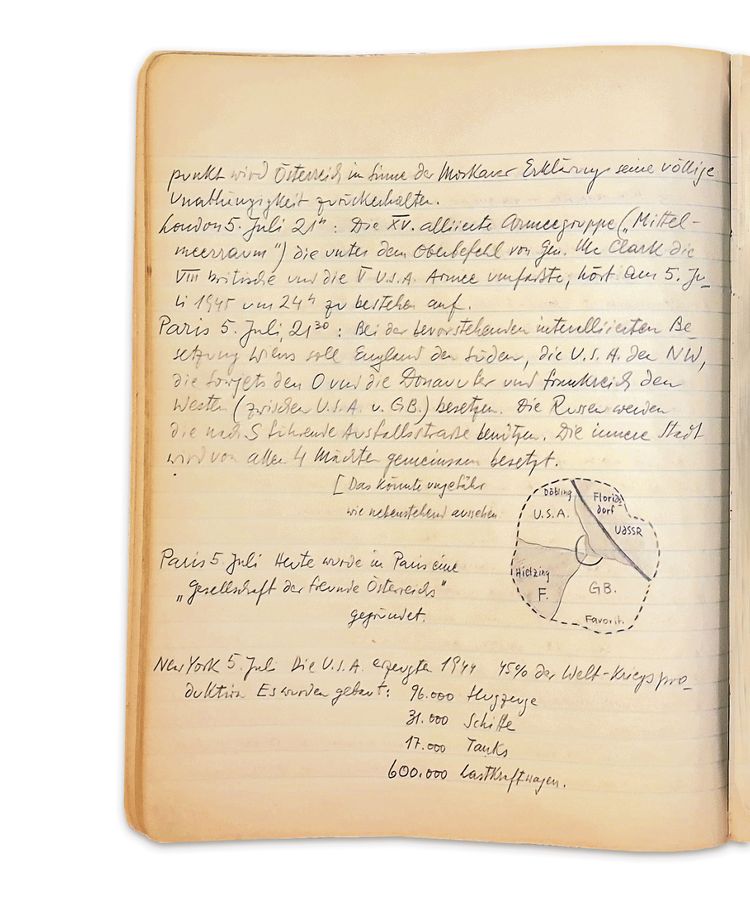 punkt wird Österreich im Sinne der Moskauer Erklärung seine völlige
Unabhängigkeit zurückerhalten.
London 5. Juli 21ʰ : Die XV. alliierte Armeegruppe („Mittel-
meerraum") die unter dem Oberbefehl von Gen. Mc Clark die
VIII britische und die V U.S.A. Armee umfaßte, hört am 5. Ju-
li 1945 um 24ʰ zu bestehen auf.
Paris 5. Juli, 21³⁰ : Bei der bevorstehenden interalliierten Be-
setzung Wiens soll England den Süden, die U.S.A. den NW,
die Sowjets den O und die Donauufer und Frankreich den
Westen (zwischen U.S.A. u. GB.) besetzen. Die Russen werden
die nach S führende Ausfallsstraße benützen. Die innere Stadt
wird von allen 4 Mächten gemeinsam besetzt.
[ Das könnte ungefähr
wie nebenstehend aussehen
Döbling
Florids-
dorf
U.S.A.
UdSSR
Hietzing
F.
GB.
Favorit.
Paris 5. Juli Heute wurde in Paris eine
„Gesellschaft der Freunde Österreichs"
gegründet.
New York 5. Juli Die U.S.A. erzeugte 1944 45% der Welt-Kriegspro-
duktion Es wurden gebaut: 96.000 Flugzeuge
31.000 Schiffe
17.000 Tanks
600.000 Lastkraftwagen.